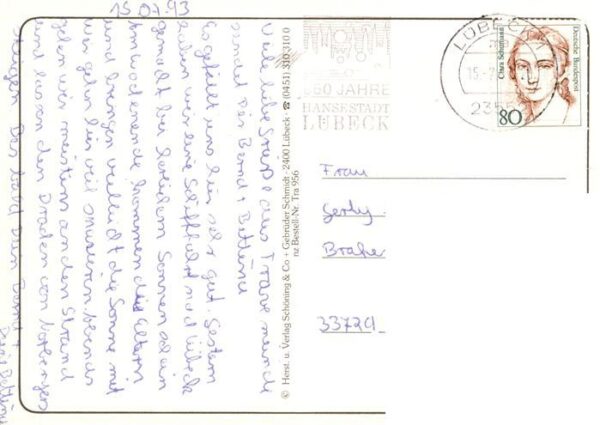 15.07.93
Viele liebe Grüße aus Travemünde
sendet Dir Bernd + Bettina
Es gefällt uns hier sehr gut. Gestern
haben wir eine Schiffahrt nach Lübeck
gemacht bei herrlichem Sonnenschein
Am Wochenende kommen die Eltern
und bringen vielleicht die Sonne mit
wir gehen hier viel spazieren. Abends
gehen wir meistens an den Strand
und lassen den Drachen von Norbert
steigen Bis bald Dein Bernd +
Deine Bettina
© Herst. u. Verlag Schöning & Co + Gebrüder Schmidt · 2400 Lübeck · ☎ (0451) 310 310 0
nz Bestell-Nr. Tra 956
850 JAHRE
HANSESTADT
LÜBECK
LÜBECK
15.
2355
Clara Schumann
Deutsche Bundespost
80
Frau
Gerty
Brake
33729